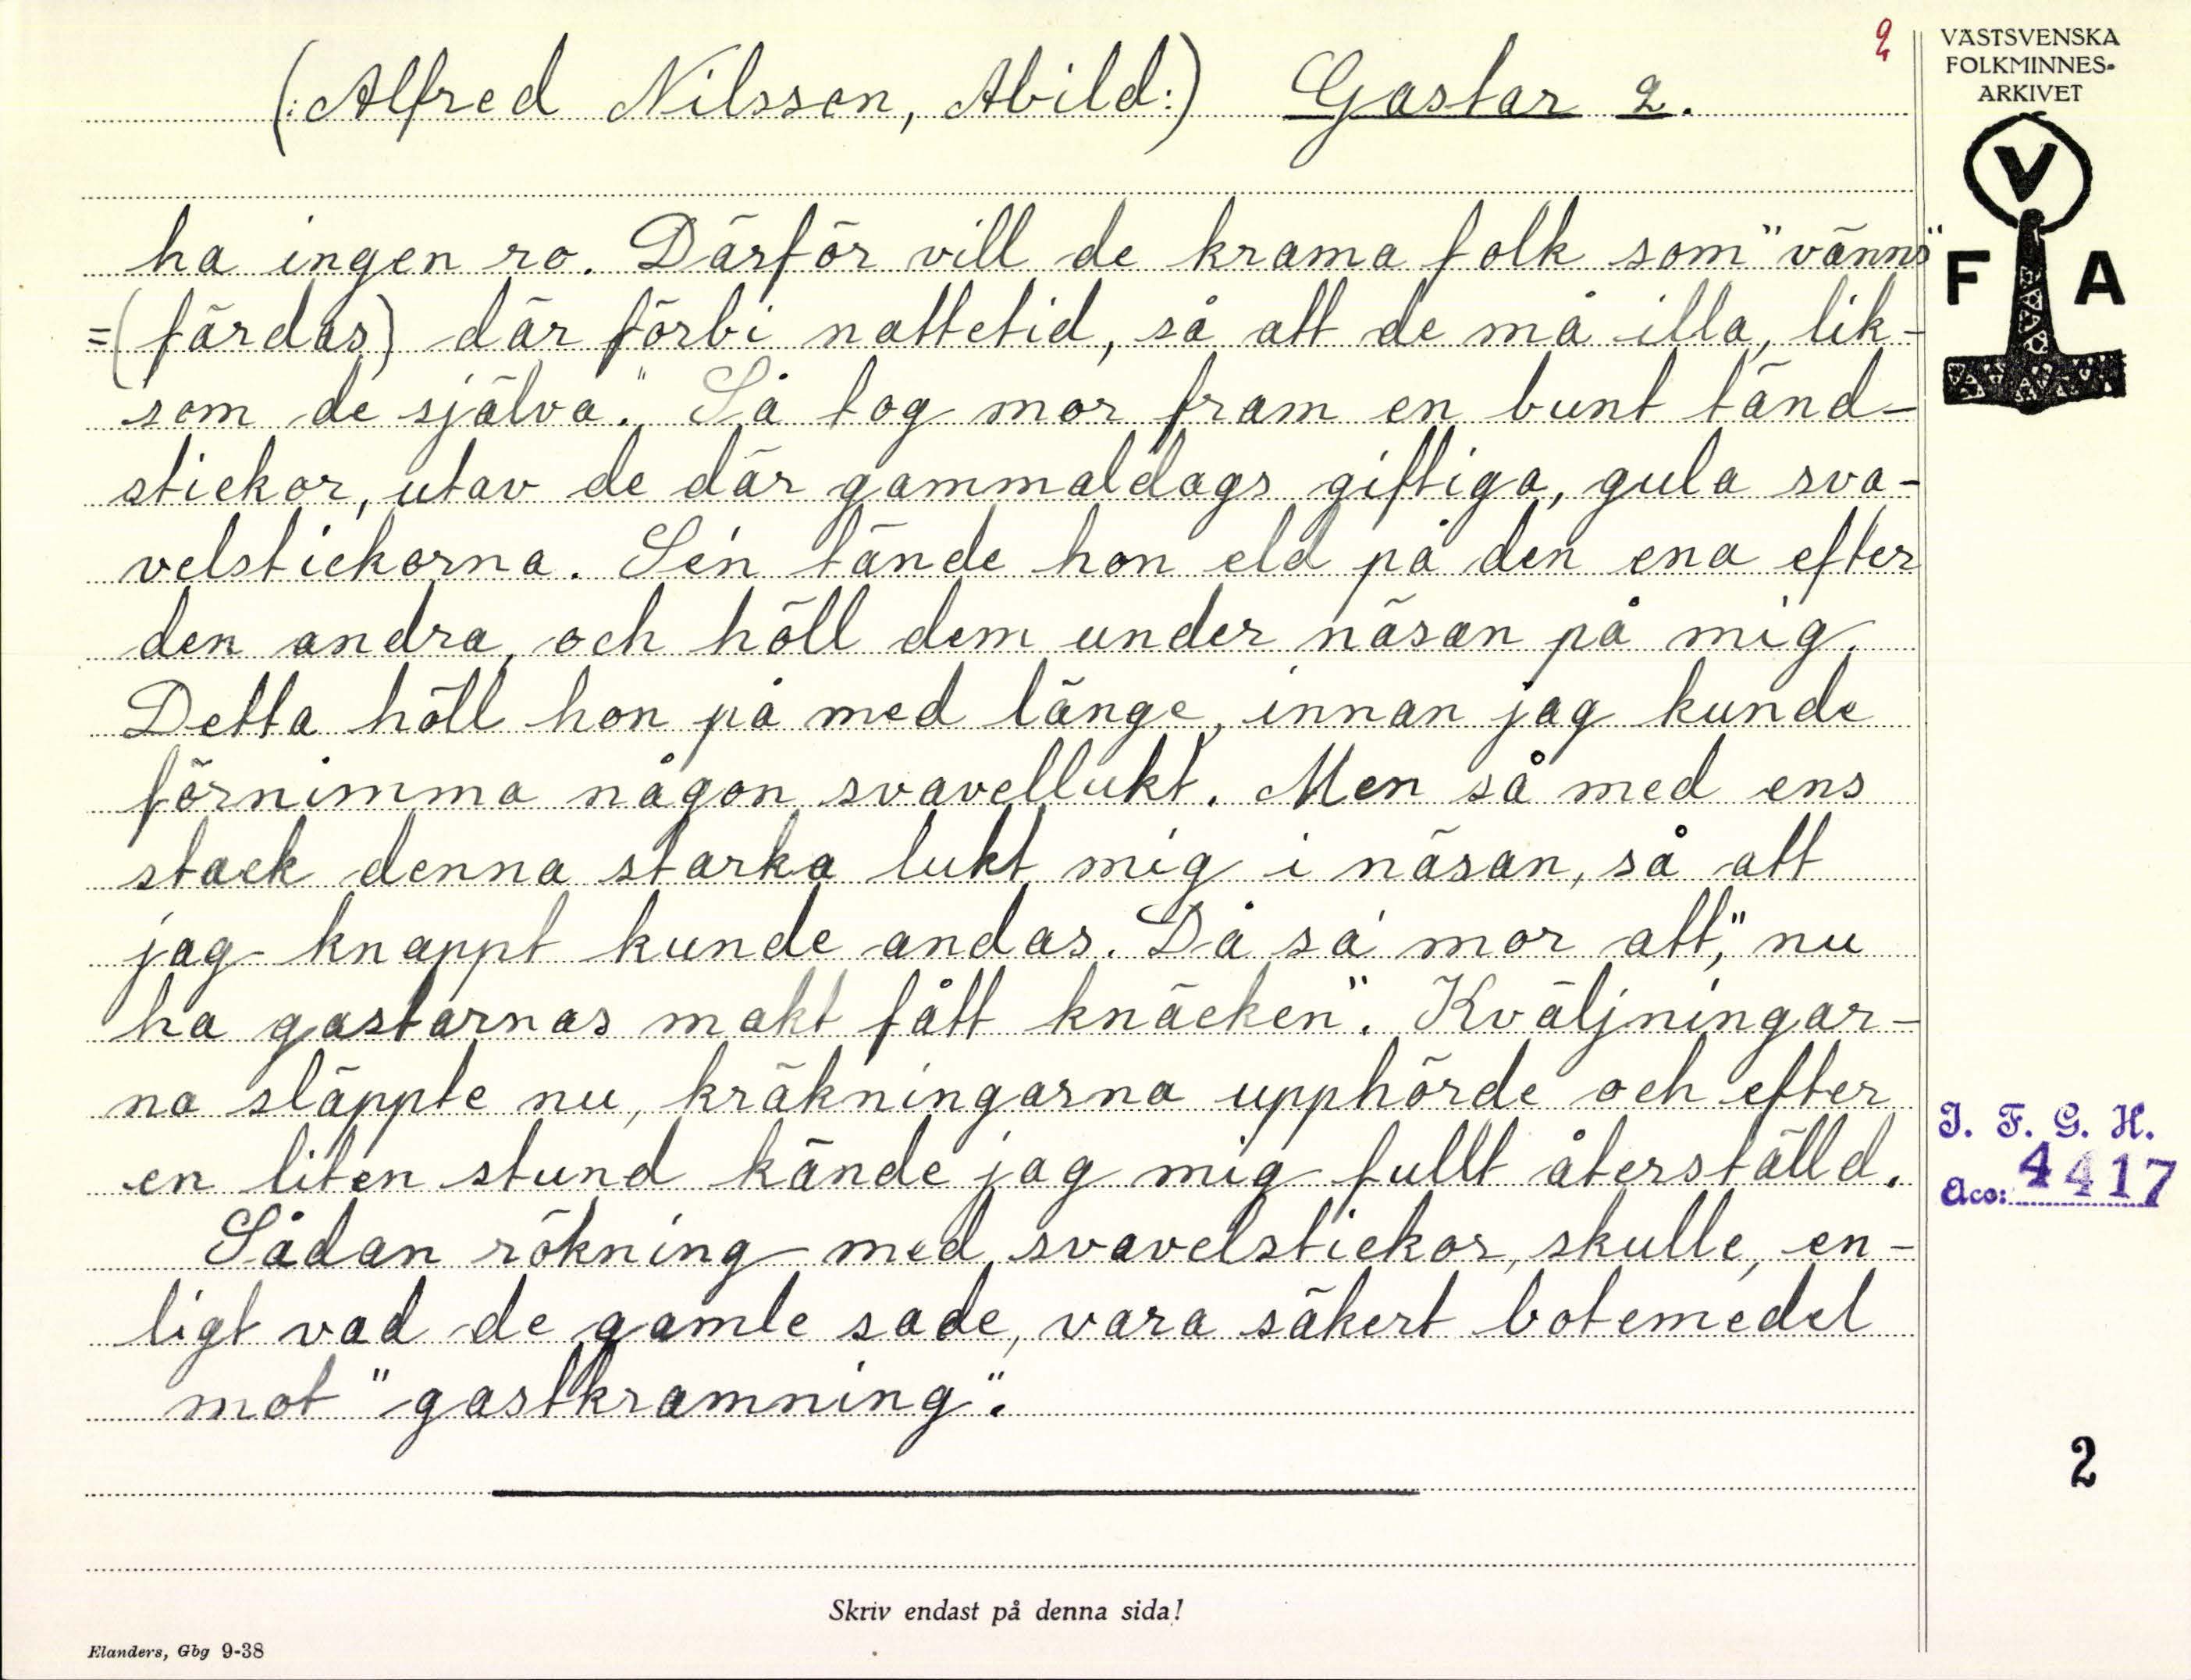 2
VÄSTSVENSKA
FOLKMINNES-
ARKIVET
V
F A
(: Alfred Nilsson, Abild:) Gastar 2.
ha ingen ro. Därför vill de krama folk som "vänns"
=(färdas) där förbi nattetid, så att de må illa, lik-
som de själva." Så tog mor fram en bunt tänd-
stickor, utav de där gammaldags giftiga, gula sva-
velstickorna. Se'n tände hon eld på den ena efter
den andra, och höll dem under näsan på mig.
Detta höll hon på med länge, innan jag kunde
förnimma någon svavellukt. Men så med ens
stack denna starka lukt mig i näsan, så att
jag knappt kunde andas. Då sa' mor att, "nu
ha gastarnas makt fått knäcken". Kväljningar-
na släppte nu, kräkningarna upphörde och efter
en liten stund kände jag mig fullt återställd.
Sådan rökning med svavelstickor, skulle, en-
ligt vad de gamle sade, vara säkert botemedel
mot "gastkramning".
I. F. G. H.
Acc: 4417
2
Skriv endast på denna sida!
Elanders, Gbg 9-38